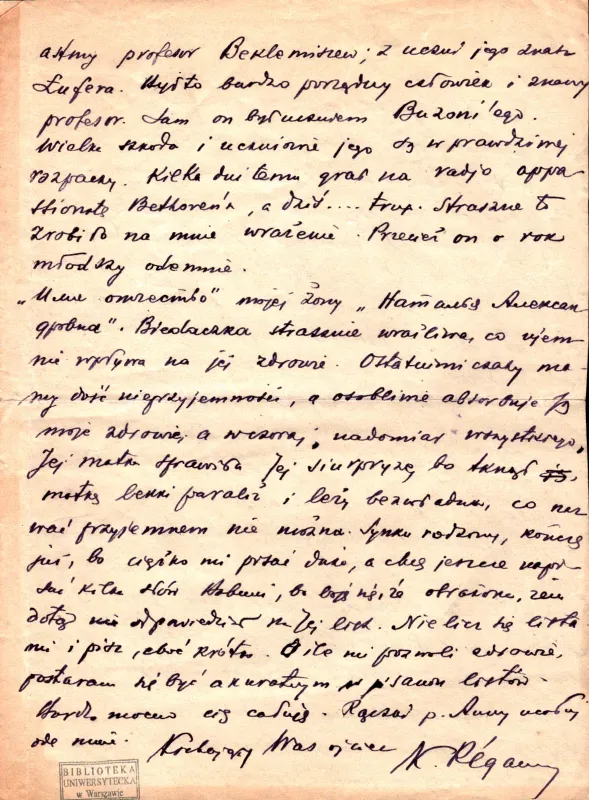 astmy profesor Beklemiszew; z uczni jego znasz
Łufera. Był to bardzo porządny człowiek i znany
profesor. Sam on był uczniem Buzoni'ego.
Wielka szkoda i uczniowie jego są w prawdziwej
rozpaczy. Kilka dni temu grał na radjo appa
ssionatę Bethovena, a dziś.... trup. Straszne to
zrobiło na mnie wrażenie. Przecież on o rok
młodszy odemnie.
„Имя отчество" mojej żony „Наталья Алексан
дровна". Biedaczka strasznie wraśliwa, co ujem
nie wpływa na jej zdrowie. Ostatnimi czasy ma
my dość nieprzyjemności, a osobliwie absorbuje ją
moje zdrowie, a wczoraj, nadomiar wszystkiego,
Jej matka sprawiła Jej siurpryzę, bo tknął
matkę lekki paraliż i leży bezwładna, co naz
wać przyjemnem nie można. Synku rodzony, kończę
już, bo ciężko mi pisać dużo, a chcę jeszcze napi
sać kilka słów, bo boję się, że obrażona, żem
dotąd nie odpowiedział na Jej list. Nie licz się lista
mi i pisz, choć krótko. O ile mi pozwoli zdrowie,
postaram się być akuratnym w pisaniu listów.
Bardzo mocno cię całuję. Rączki p. Anny ucałuj
ode mnie. Kochający Was ojciec K. Régamey
BIBLIOTEKA
UNIWERSYTECKA
w Warszawie